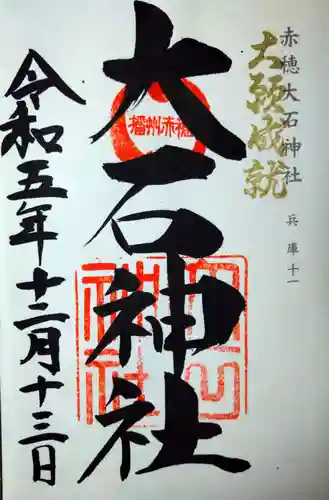 赤穂大石神社 兵庫十一
大願成就
播州赤穂
大石神社
令和五年十二月十三日